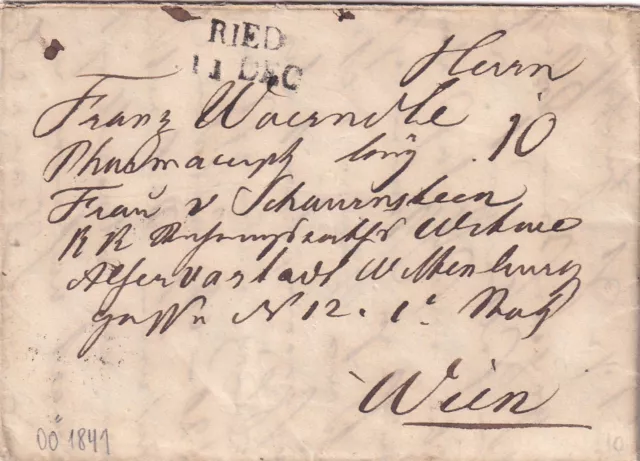 RIED
11 DEC
Herrn
Franz Woerndle
10
Pharmaceut
Frau v Schauenstein
KK Witwe
Alservorstadt Wittenburg
gasse N 12. 1r Stock
Wien
OÖ 1841
10